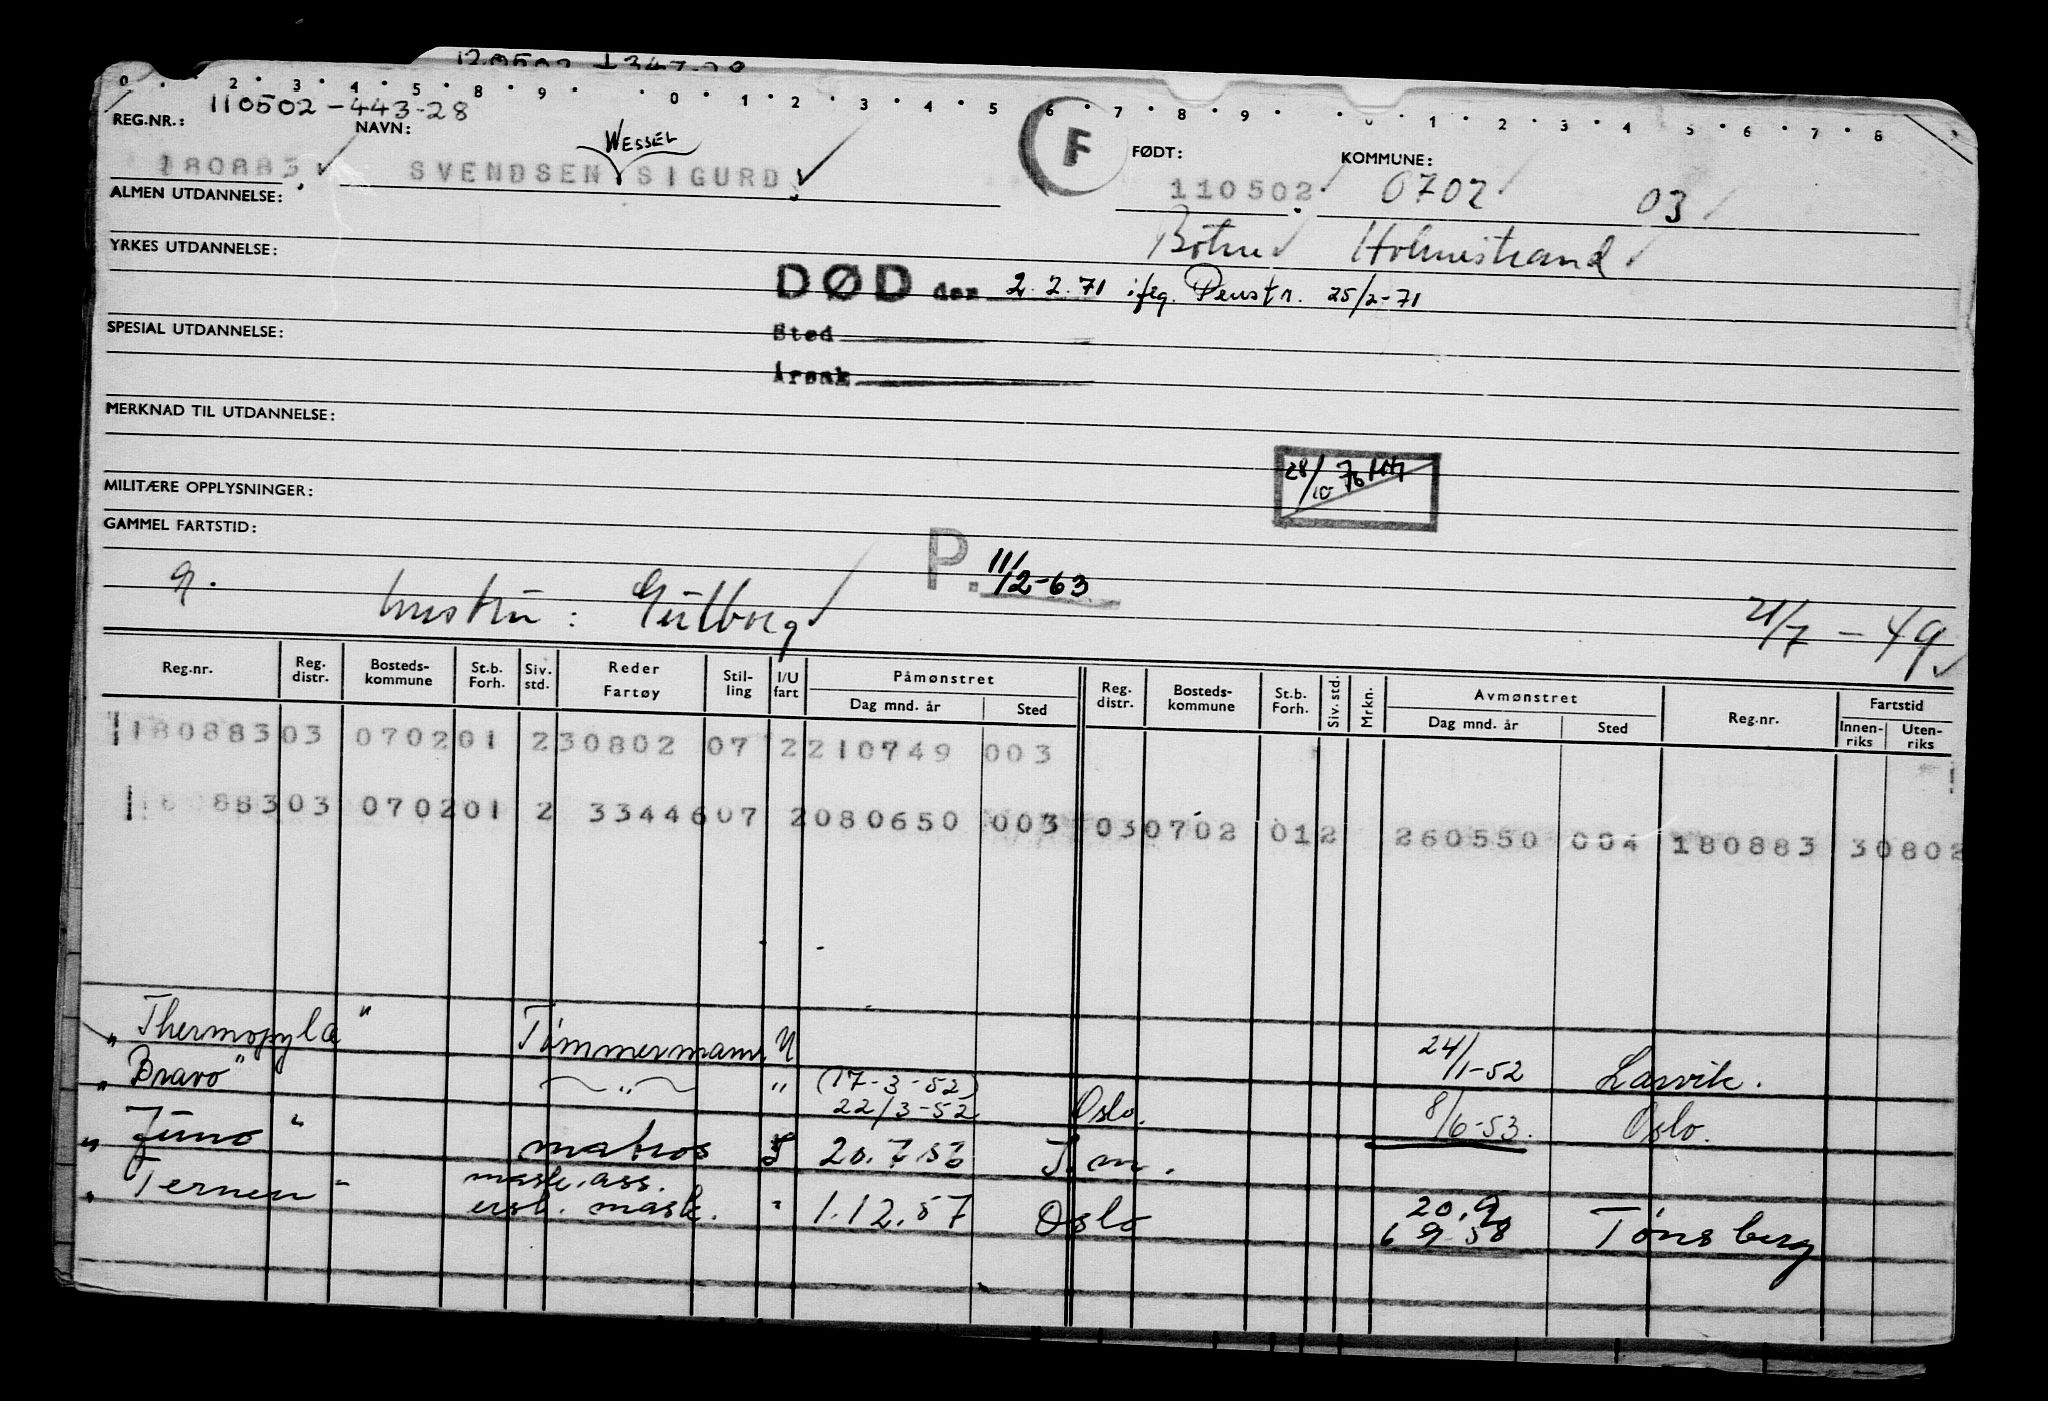 0 2 3 4 5 8 9 0 1 2 3 4 5 6 7 8 9 0 1 2 3 4 5 6 7 8
REG.NR.: 110502-443-28
NAVN: WESSEL F FØDT: KOMMUNE:
180883 SVENDSEN SIGURD 110502 0702 03
ALMEN UTDANNELSE:
Botne Holmestrand
YRKES UTDANNELSE:
DØD den 2.2.71 iføg. Penstr. 25/2-71
SPESIAL UTDANNELSE:
Sted
Årsak
MERKNAD TIL UTDANNELSE:
28/10 76
MILITÆRE OPPLYSNINGER:
GAMMEL FARTSTID:
P. 11/2-63
g. hustru: Gülborg 21/7-49
Reg.nr. Reg. distr. Bosteds-kommune St.b. Forh. Siv. std. Reder Fartøy Stil-ling I/U fart Påmønstret Dag mnd. år Sted Reg. distr. Bosteds-kommune St.b. Forh. Siv. std. Mrkn. Avmønstret Dag mnd. år Sted Reg.nr. Fartstid Innen-riks Uten-riks
180883 03 0702 01 2 30802 07 2 210749 003
88303 0702 01 2 33446 07 2 080650 003 03 0702 01 2 260550 004 180883 30802
"Thermopylæ" Tømmermann U 24/1-52 Larvik.
"Bravo" " " (17-3-52) 22/3-52 Oslo. 8/6-53. Oslo.
"Juno" matros 20.7.56 T.m.
"Ternen" mask.ass. urb. mask. " 1.12.57 Oslo 20.9 6 9-58 Tønsberg